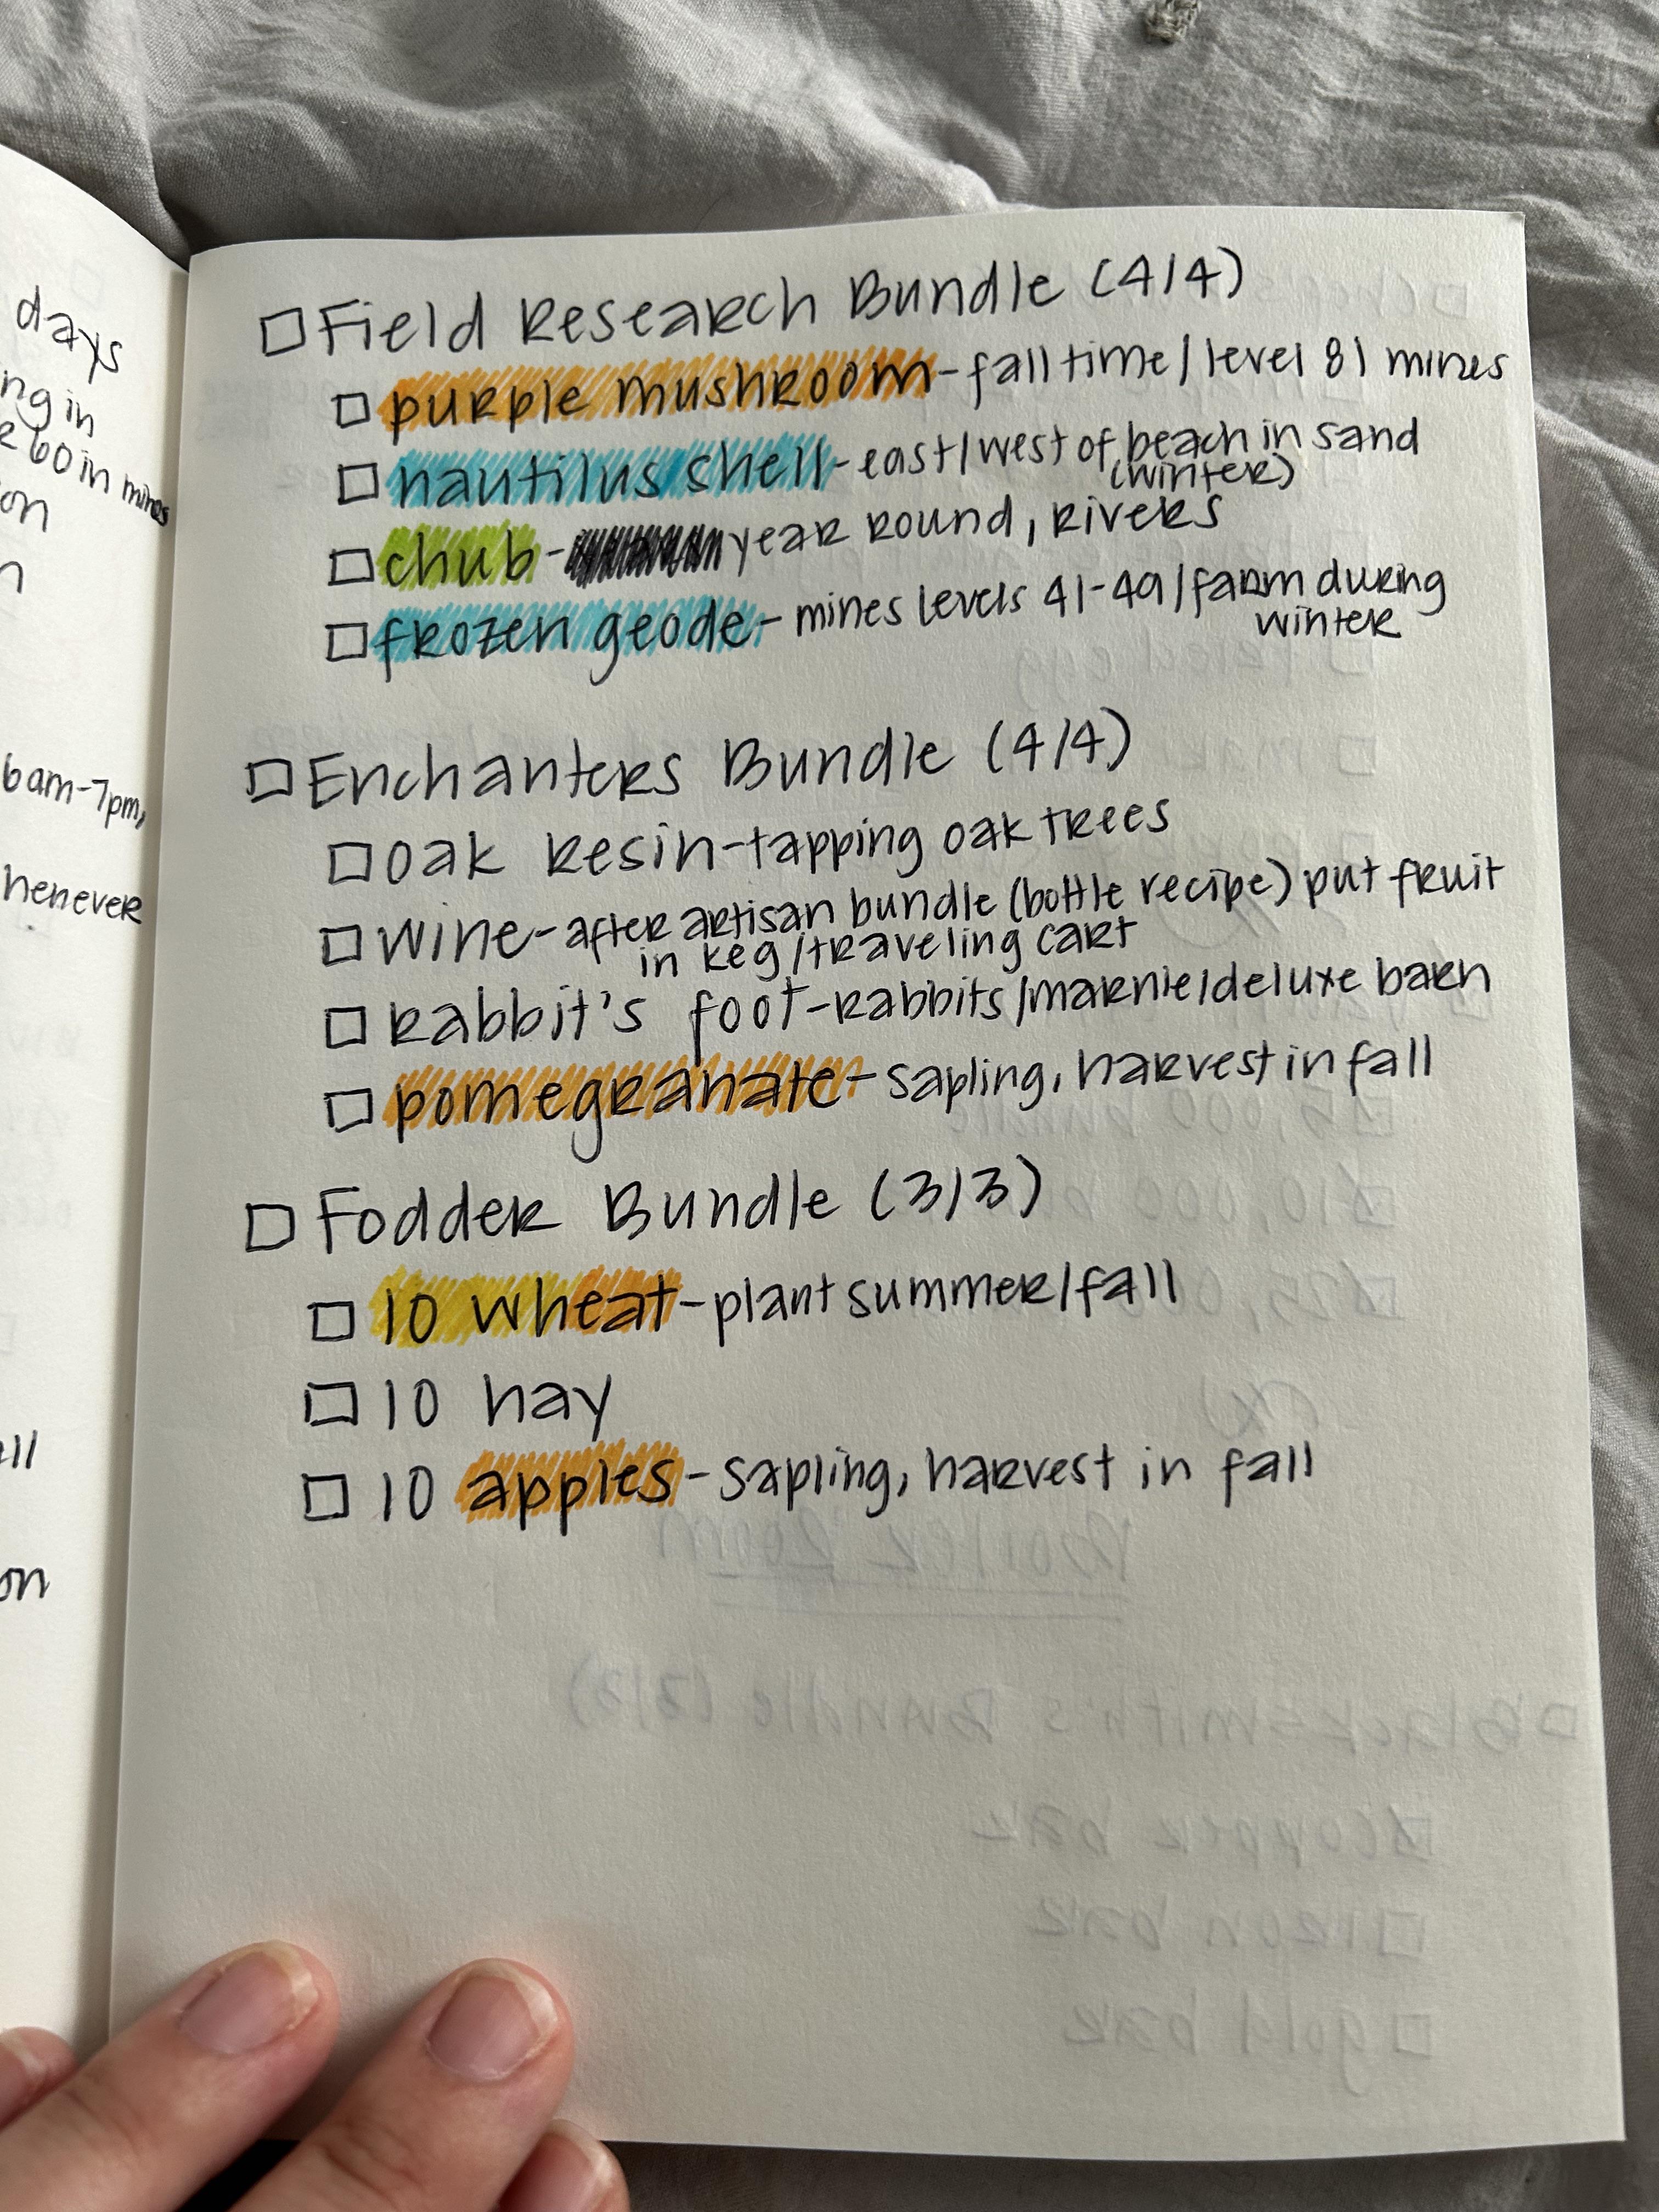 days
ng in
60 in mines
on
n
6am-7pm,
henever
all
on
Field Research Bundle (4/4)
purple mushroom - fall time / level 81 mines
nautilus shell - east/west of beach in sand
(winter)
chub - year round, rivers
frozen geode - mines levels 41-49 / farm during
winter
Enchanters Bundle (4/4)
oak resin - tapping oak trees
wine - after artisan bundle (bottle recipe) put fruit
in keg / traveling cart
rabbit's foot - rabbits / marnie / deluxe barn
pomegranate - sapling, harvest in fall
Fodder Bundle (3/3)
10 wheat - plant summer/fall
10 hay
10 apples - sapling, harvest in fall